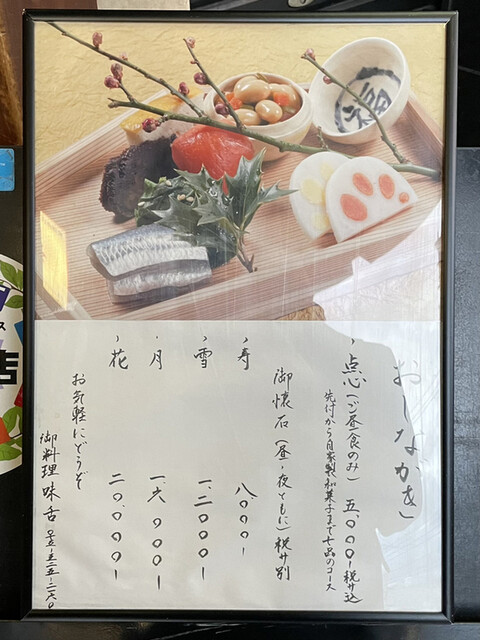 おしながき
点心(ご昼食のみ) 五、〇〇〇ー税サ込
先付から自家製和菓子まで七品のコース
御懐石(昼・夜ともに)税サ別
寿 八〇〇〇ー
雪 一、二〇〇〇ー
月 一、六〇〇〇ー
花 二〇、〇〇〇ー
お気軽にどうぞ
御料理 味舌
ス
店